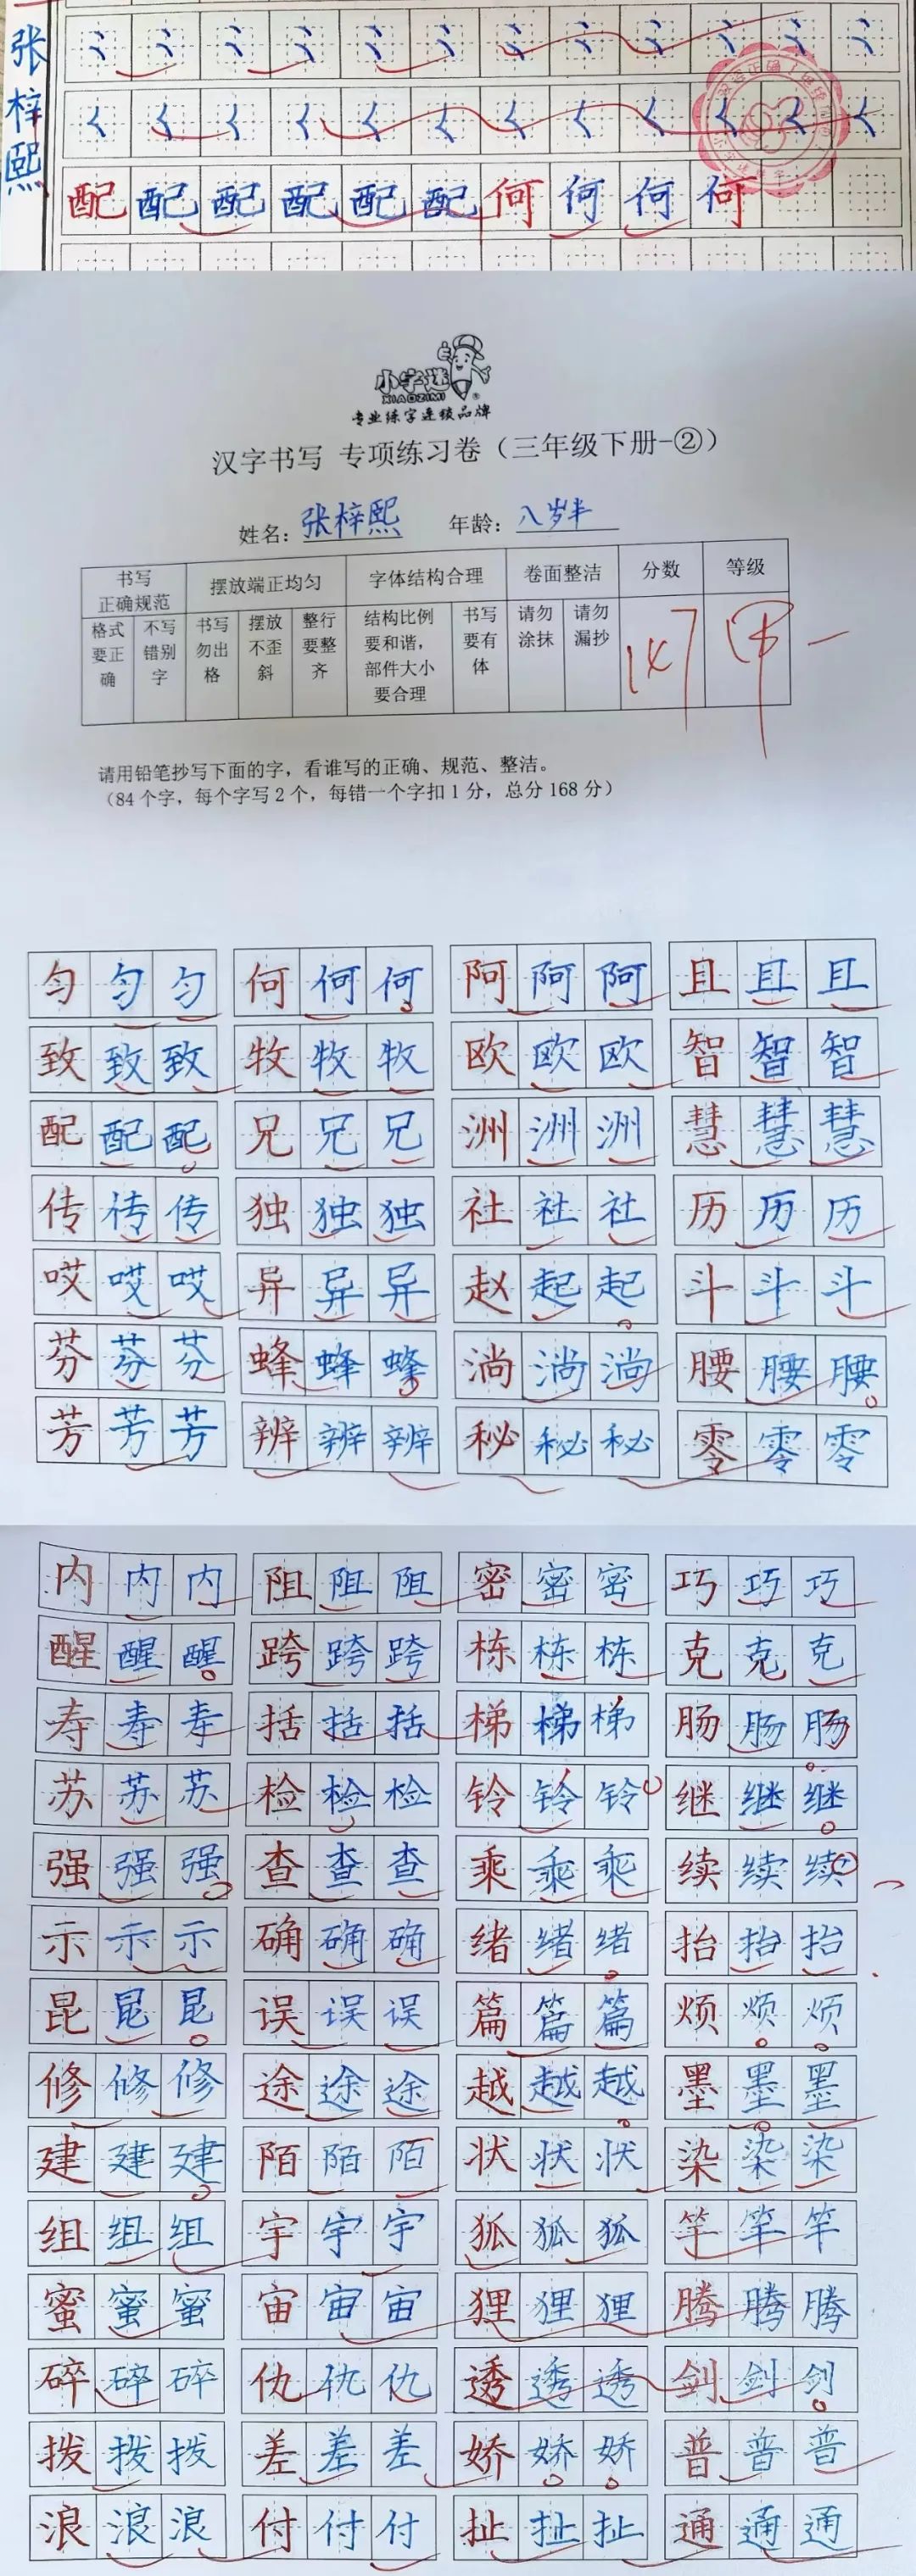 张梓熙
配 配 配 配 配 配 何 何 何 何
小字迷
XIAOZIMI
专业练字连锁品牌
汉字书写 专项练习卷（三年级下册-②）
姓名：张梓熙 年龄：八岁半
书写正确规范 摆放端正均匀 字体结构合理 卷面整洁 分数 等级
格式要正确 不写错别字 书写勿出格 摆放不歪斜 整行要整齐 结构比例要和谐，部件大小要合理 书写要有体 请勿涂抹 请勿漏抄 147 甲一
请用铅笔抄写下面的字，看谁写的正确、规范、整洁。
（84个字，每个字写2个，每错一个字扣1分，总分168分）
匀 匀 匀 何 何 何 阿 阿 阿 且 且 且
致 致 致 牧 牧 牧 欧 欧 欧 智 智 智
配 配 配 兄 兄 兄 洲 洲 洲 慧 慧 慧
传 传 传 独 独 独 社 社 社 历 历 历
哎 哎 哎 异 异 异 赵 起 起 斗 斗 斗
芬 芬 芬 蜂 蜂 蜂 淌 淌 淌 腰 腰 腰
芳 芳 芳 辨 辨 辨 秘 秘 秘 零 零 零
内 内 内 阻 阻 阻 密 密 密 巧 巧 巧
醒 醒 醒 跨 跨 跨 栋 栋 栋 克 克 克
寿 寿 寿 括 括 括 梯 梯 梯 肠 肠 肠
苏 苏 苏 检 检 检 铃 铃 铃 继 继 继
强 强 强 查 查 查 乘 乘 乘 续 续 续
示 示 示 确 确 确 绪 绪 绪 抬 抬 抬
昆 昆 昆 误 误 误 篇 篇 篇 烦 烦 烦
修 修 修 途 途 途 越 越 越 墨 墨 墨
建 建 建 陌 陌 陌 状 状 状 染 染 染
组 组 组 宇 宇 宇 狐 狐 狐 竿 竿 竿
蜜 蜜 蜜 宙 宙 宙 狸 狸 狸 腾 腾 腾
碎 碎 碎 仇 仇 仇 透 透 透 剑 剑 剑
拨 拨 拨 差 差 差 娇 娇 娇 普 普 普
浪 浪 浪 付 付 付 扯 扯 扯 通 通 通